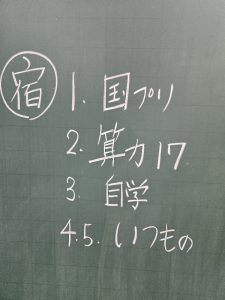 宿 1. 国プリ
2. 算力17
3. 自学
4.5. いつもの